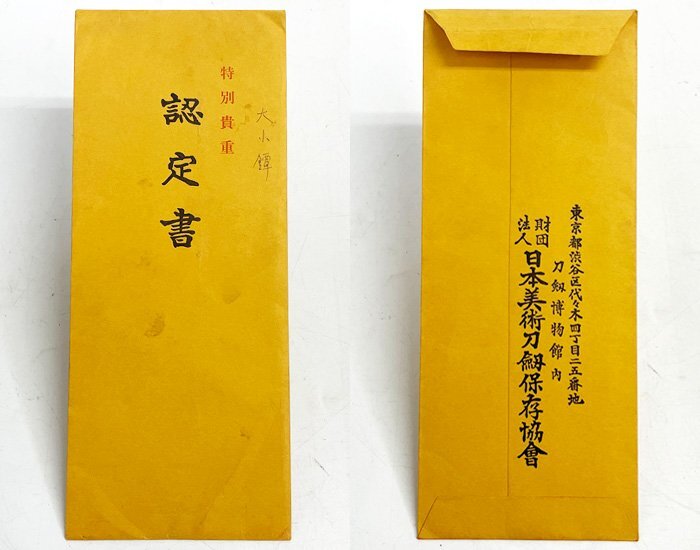 大小鐔
特別貴重
認定書
東京都渋谷区代々木四丁目二五番地
刀剱博物館内
財団
法人
日本美術刀剱保存協會